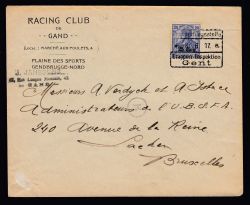 RACING CLUB
DE
GAND
LOCAL: MARCHÉ AUX POULETS, 4
PLAINE DES SPORTS
GENDBRUGGE-NORD
GAND
17
Etappen-Inspektion
Gent
Messieurs A Verdyck et A
Administrateurs de l'U.B.S.F.A.
240 Avenue de la Reine
Laeken
Bruxelles